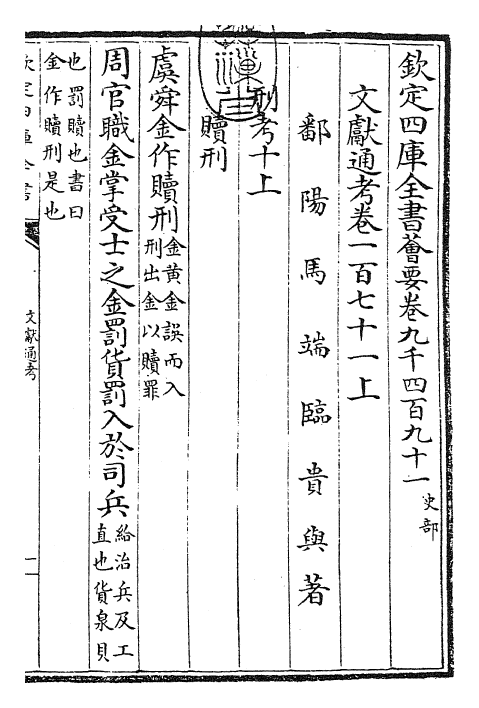 欽定四庫全書薈要卷九千四百九十一 史部
文獻通考卷一百七十一上
鄱陽馬端臨貴與著
刑考十上
贖刑
虞舜金作贖刑 金黄金誤而入
刑出金以贖罪
周官職金掌受士之金罰貨罰入於司兵 給治兵及工
直也貨泉貝
也罰贖也書曰
金作贖刑是也
文獻通考
一